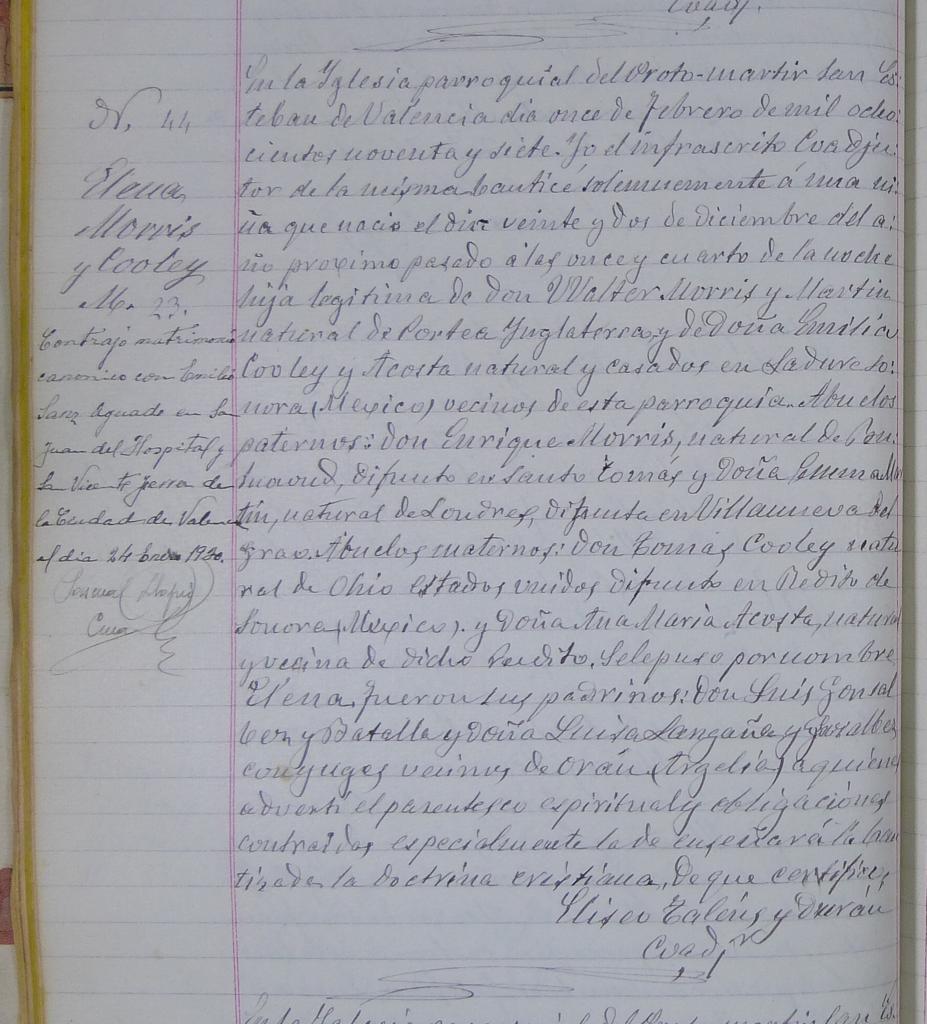 Coadjr.
N. 44
Elena
Morris
y Cooley
M. 23.
Contrajo matrimonio
canonico con Emilio
Sanz Aguado en San
Juan del Hospital y
San Vicente Ferrer de
la Ciudad de Valencia
el dia 24 Enero 1920.
Cura
En la Yglesia parroquial del Proto-martir San Es-
teban de Valencia dia once de Febrero de mil ocho-
cientos noventa y siete. Yo el infrascrito Coadju-
tor de la misma bauticé solemnemente á una ni-
ña que nacio el dia veinte y dos de diciembre del a-
ño proximo pasado á las once y cuarto de la noche
hija legitima de don Walter Morris y Martin
natural de Portea Ynglaterra, y de Doña Emilia
Cooley y Acosta natural y casados en Ladura So-
nora, (Mexico) vecinos de esta parroquia. Abuelos
paternos: don Enrique Morris, natural de
difunto en Santo Tomás y Doña Emma Mar
tin, natural de Londres, difunta en Villanueva del
Grao. Abuelos maternos: don Tomás Cooley natu
ral de Ohio Estados unidos difunto en Redito de
Sonora, (Mexico). y Doña Ana Maria Acosta, natural
y vecina de dicho Redito. Se le puso por nombre
Elena, fueron sus padrinos: don Luis Gonsal
bez y Batalla y Doña Luisa Langaña y Gosalbez
conyuges vecinos de Orán (Argelia) a quienes
adverti el parentesco espiritual y obligaciones
contraidas especialmente la de enseñar á la bau
tizada la doctrina cristiana, De que certifico,
Eliseo Taléns y Durán
Coadjr